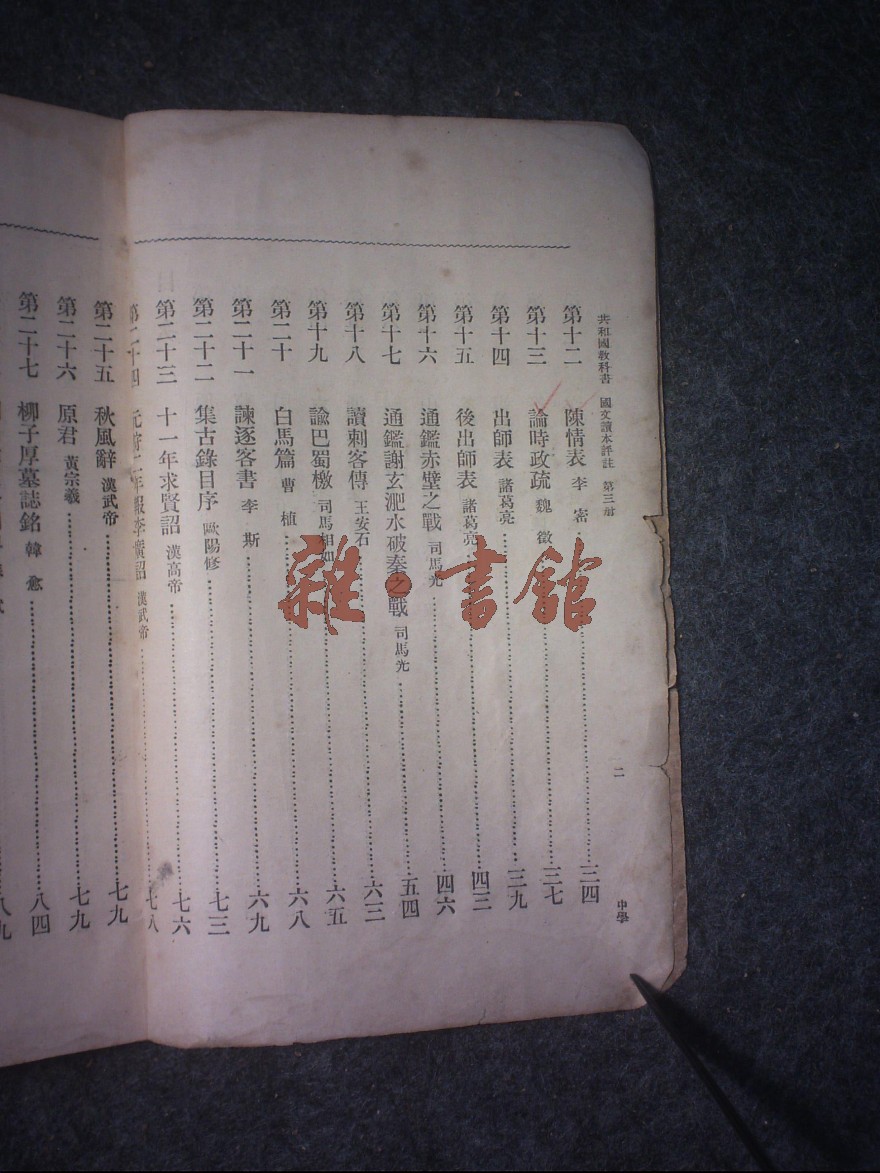 共和國教科書 國文讀本評註 第三册
二
中學
第十二 陳情表 李密 三四
第十三 論時政疏 魏徵 三七
第十四 出師表 諸葛亮 三九
第十五 後出師表 諸葛亮 四三
第十六 通鑑赤壁之戰 司馬光 四六
第十七 通鑑謝玄淝水破秦之戰 司馬光 五四
第十八 讀刺客傳 王安石 六三
第十九 諭巴蜀檄 司馬相如 六五
第二十 白馬篇 曹植 六八
第二十一 諫逐客書 李斯 六九
第二十二 集古錄目序 歐陽修 七三
第二十三 十一年求賢詔 漢高帝 七六
第二十四 元狩二年報李廣詔 漢武帝 七八
第二十五 秋風辭 漢武帝 七九
第二十六 原君 黃宗羲 七九
第二十七 柳子厚墓誌銘 韓愈 八四
八九
雜·書館